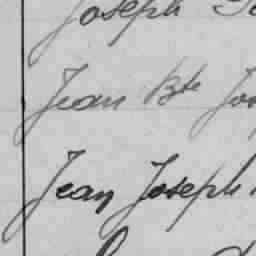 Joseph
Jean Bte Jos
Jean Joseph